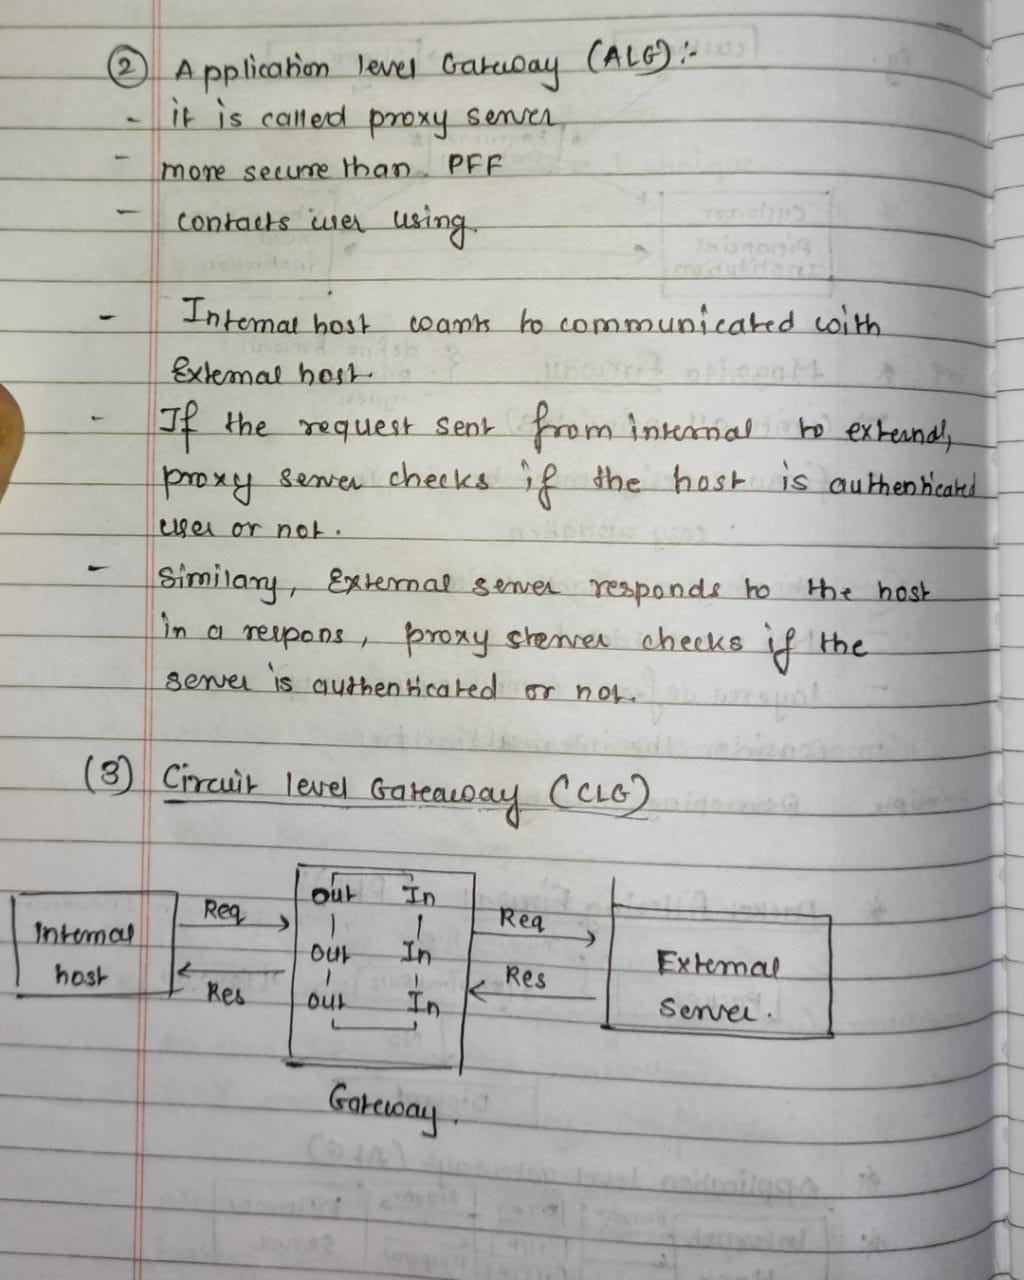 ② Application level Gateway (ALG):-
- it is called proxy server
- more secure than PFF
- contacts user using.
- Internal host wants to communicated with
External host.
- If the request sent from internal to external,
proxy server checks if the host is authenticated
user or not.
- Similary, External server responds to the host
in a respons, proxy server checks if the
server is authenticated or not.
(3) Circuit level Gateway (CLG)
Internal host
Req
Res
Out In
Out In
Out In
Gateway.
Req
Res
External
Server.